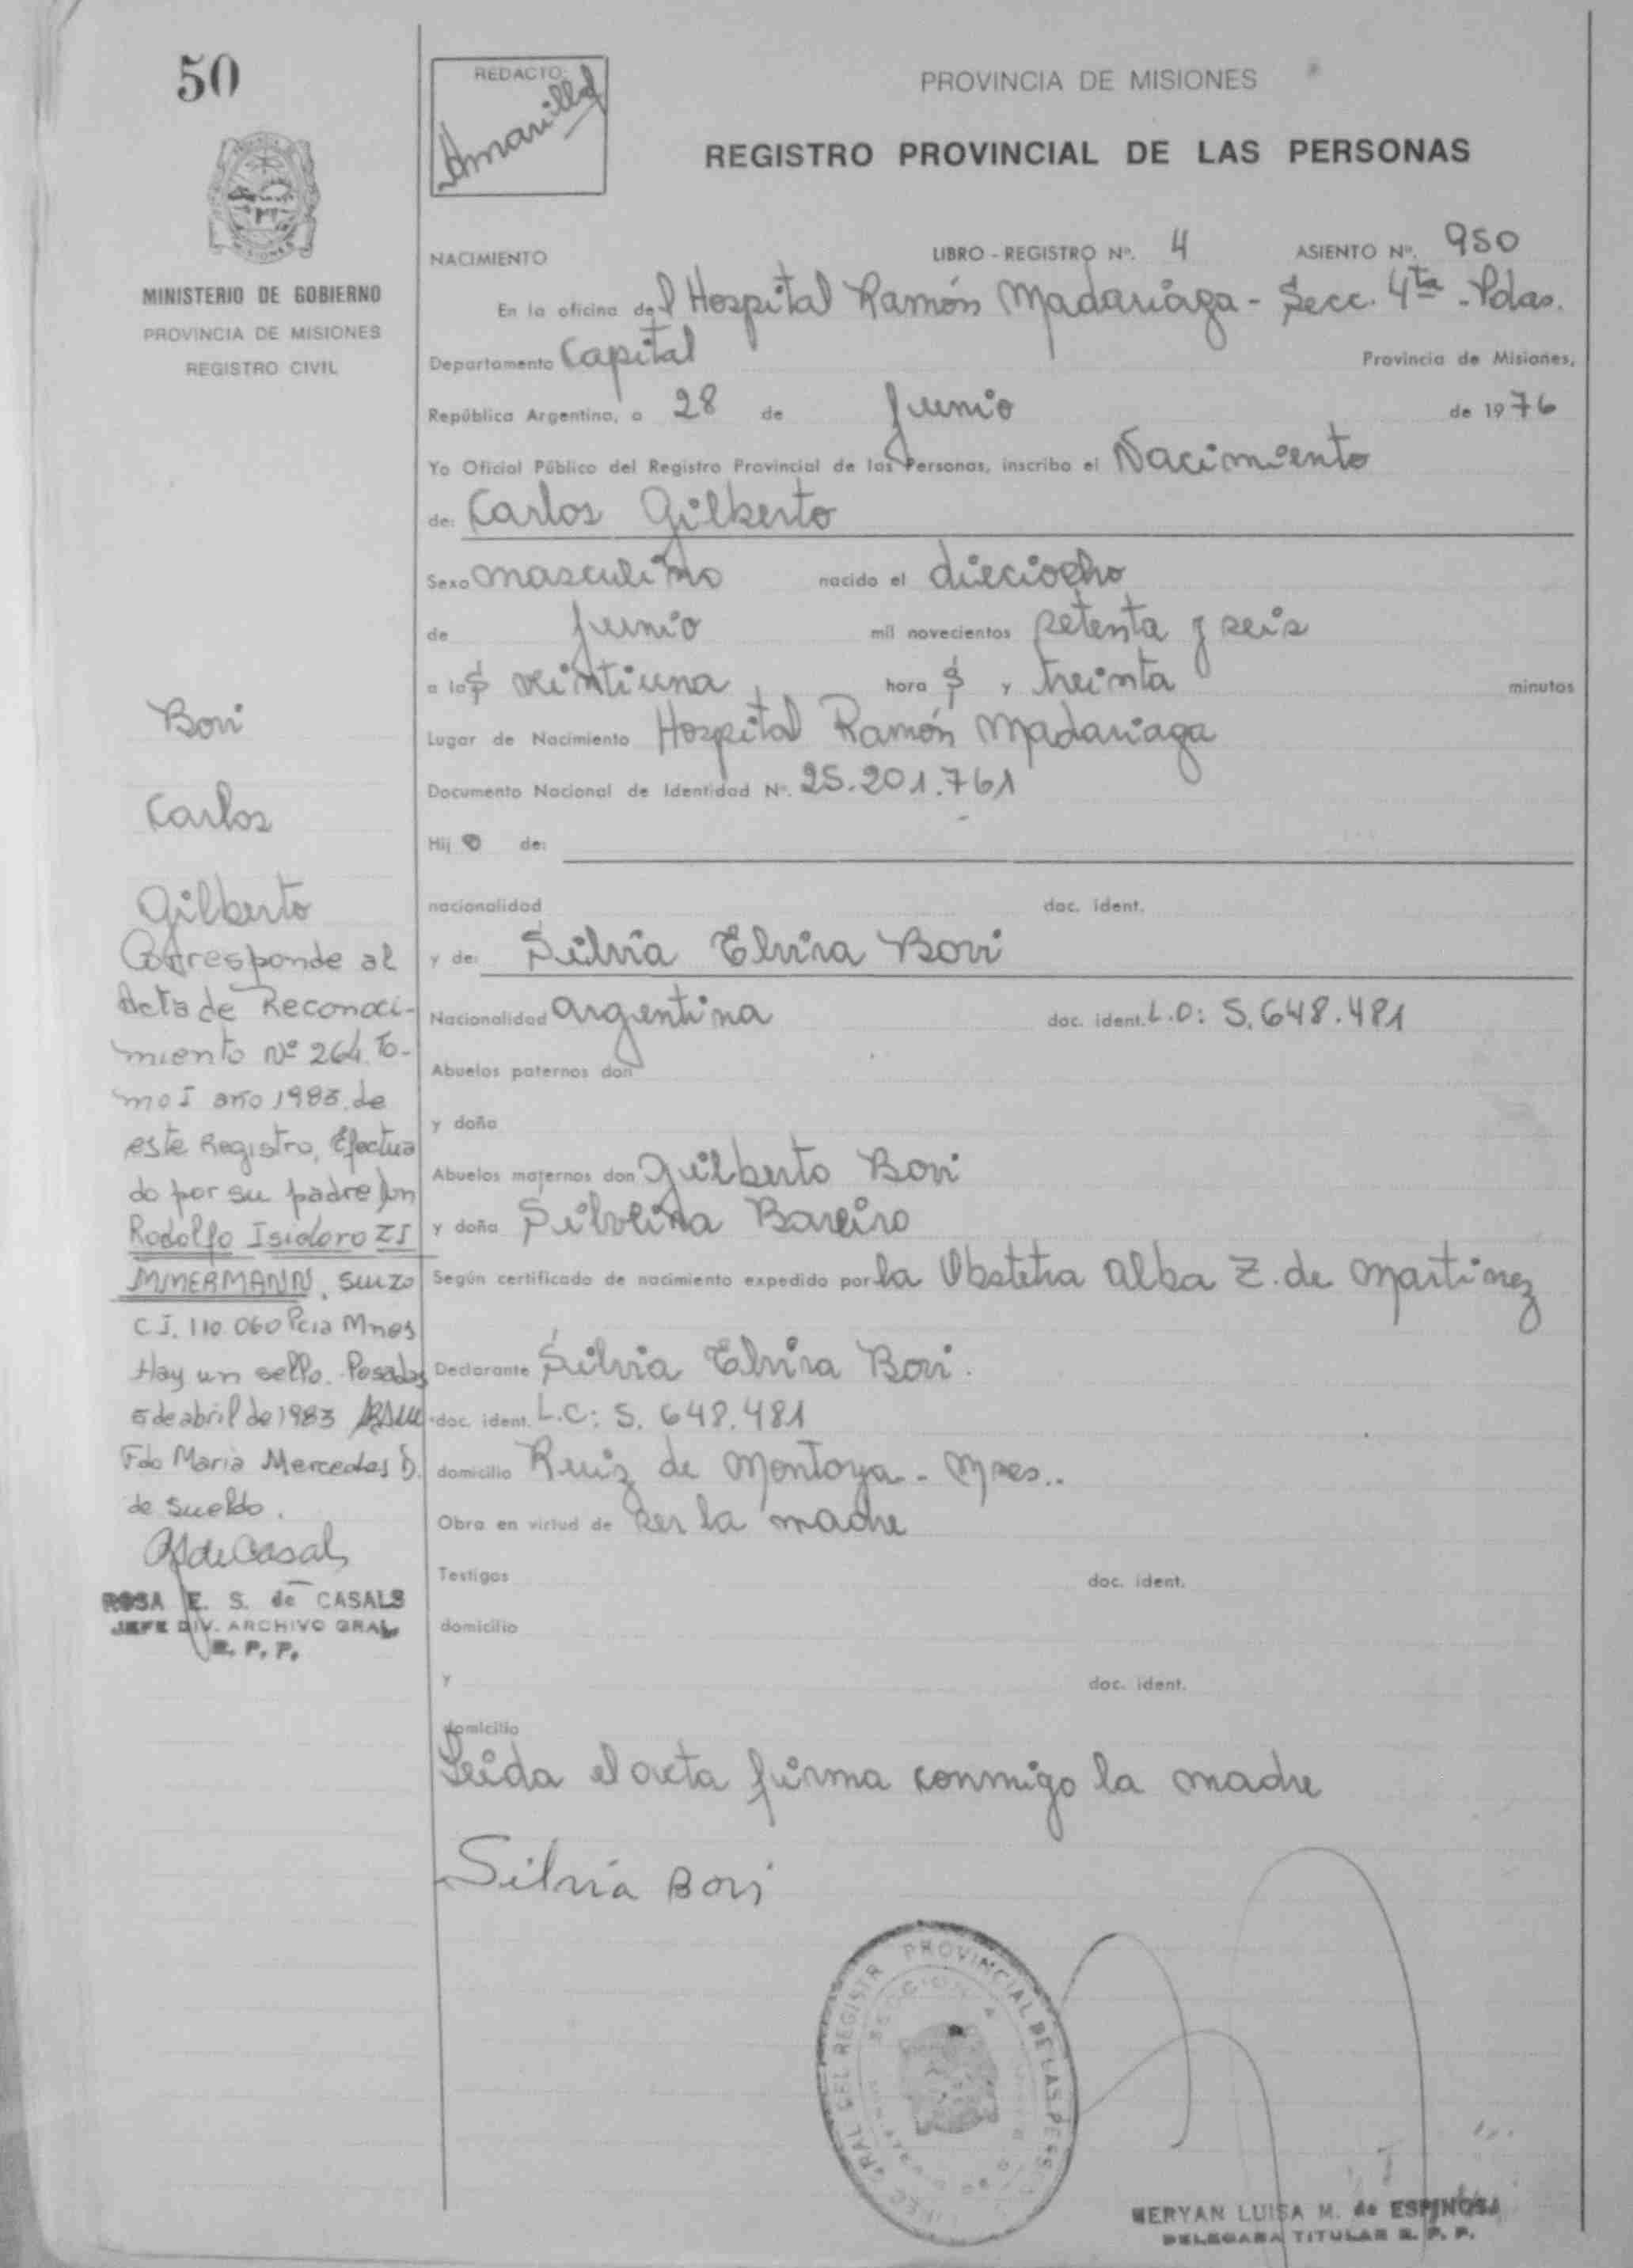 50
REDACTO:
Amarilla
PROVINCIA DE MISIONES
REGISTRO PROVINCIAL DE LAS PERSONAS
MINISTERIO DE GOBIERNO
PROVINCIA DE MISIONES
REGISTRO CIVIL
NACIMIENTO LIBRO - REGISTRO Nº. 4 ASIENTO Nº. 950
En la oficina del Hospital Ramón Madariaga - Secc. 4ta - Pdas.
Departamento Capital Provincia de Misiones,
República Argentina, a 28 de Junio de 1976
Yo Oficial Público del Registro Provincial de las Personas, inscribo el Nacimiento
de: Carlos Gilberto
Sexo masculino nacido el dieciocho
de Junio mil novecientos setenta y seis
a las veintiuna horas y treinta minutos
Lugar de Nacimiento Hospital Ramón Madariaga
Documento Nacional de Identidad Nº. 25.201.761
Hijo de:
nacionalidad doc. ident.
y de: Silvia Elvira Bovi
Nacionalidad argentina doc. ident. 5.648.481
Abuelos paternos don
y doña
Abuelos maternos don Gilberto Bovi
y doña Silveina Bareiro
Según certificado de nacimiento expedido por la Obstetra Alba Z. de Martinez
Declarante Silvia Elvira Bovi.
doc. ident. L.C: 5.648.481
domicilio Ruiz de Montoya - Mnes..
Obra en virtud de ser la madre
Testigos doc. ident.
domicilio
y doc. ident.
domicilio
Leida el acta firma conmigo la madre
Silvia Bovi
Bovi
Carlos
Gilberto
Corresponde al
Acta de Reconoci-
miento Nº 264. To-
mo I año 1983. de
este Registro, Efectua
do por su padre Don
Rodolfo Isidoro ZI
MMERMANN, suizo
C.I. 110.060 Pcia Mnes
Hay un sello. Posadas
5 de abril de 1983
Fdo Maria Mercedes D.
de Sueldo.
R de Casals
ROSA E. S. de CASALS
JEFE DIV. ARCHIVO GRAL
R. P. P.
PROVINCIAL DE LAS PERSO
GRAL DEL REGISTR
SECCION 4
MERYAN LUISA M. de ESPINOSA
DELEGADA TITULAR R. P. P.